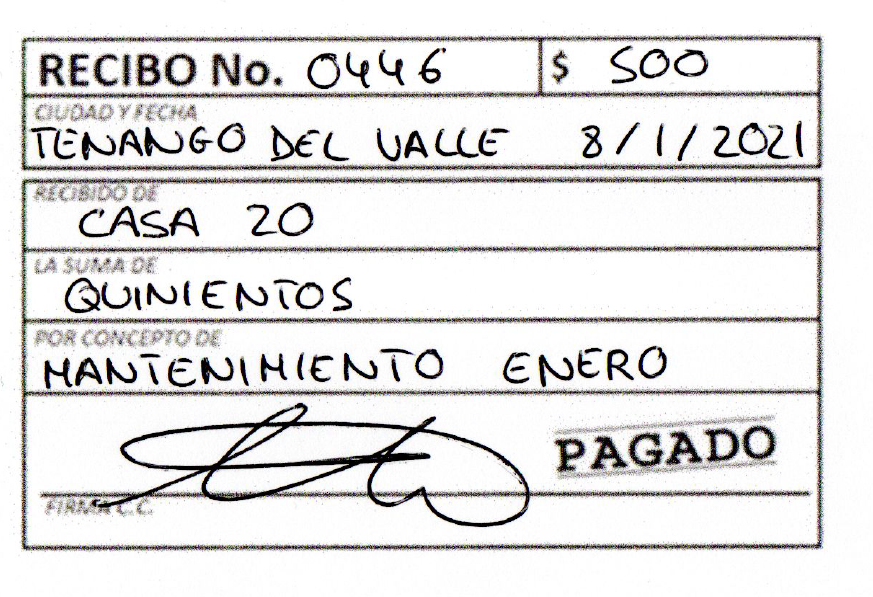 RECIBO No. 0446 $ 500
CIUDAD Y FECHA
TENANGO DEL VALLE 8/1/2021
RECIBIDO DE
CASA 20
LA SUMA DE
QUINIENTOS
POR CONCEPTO DE
MANTENIMIENTO ENERO
PAGADO
FIRMA C.C.